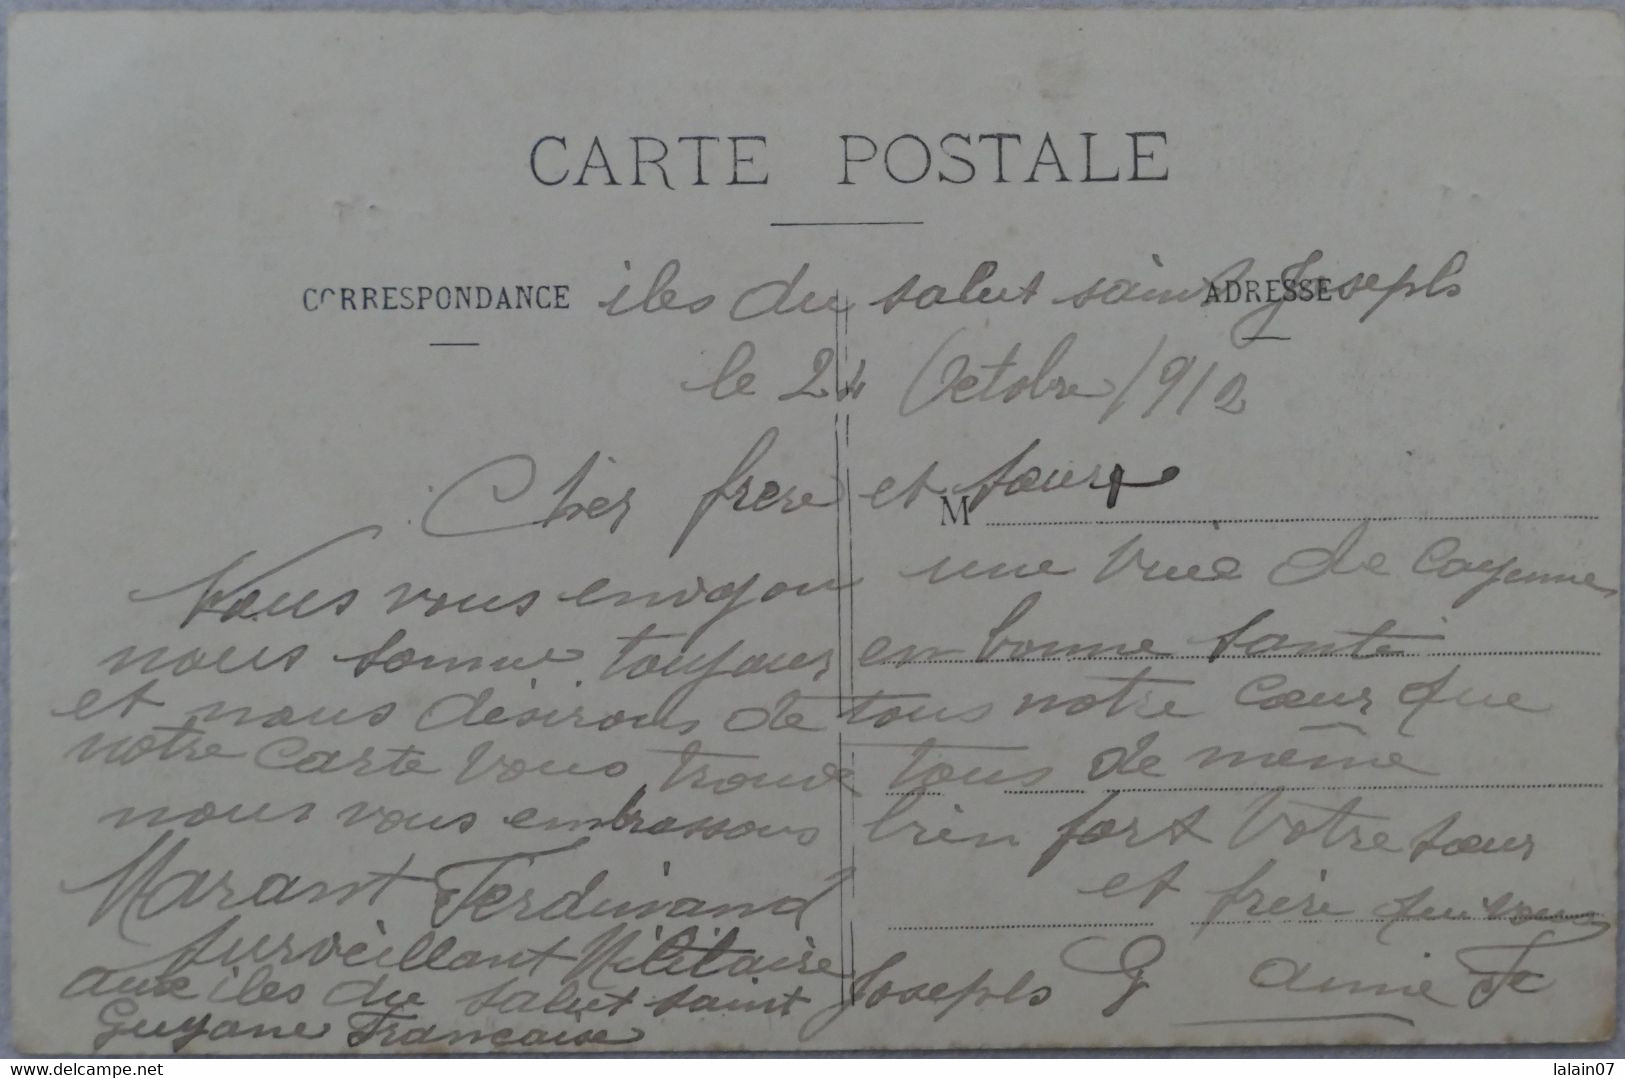 CARTE POSTALE
CORRESPONDANCE
ADRESSE
iles du salut saint Josephs
le 24 Octobre 1912
Cher frere et soeur
M
Nous vous envoyon une vue de Cayenne
nous somme toujour en bonne santé
et nous désirons de tous notre coeur que
notre carte vous trouve tous de même
nous vous embrassons bien fort Votre soeur
et frère qui vous
Marant Ferdinand
aime
surveillant Militaire
aux iles du salut saint Josephs
Guyane Française
lalain07